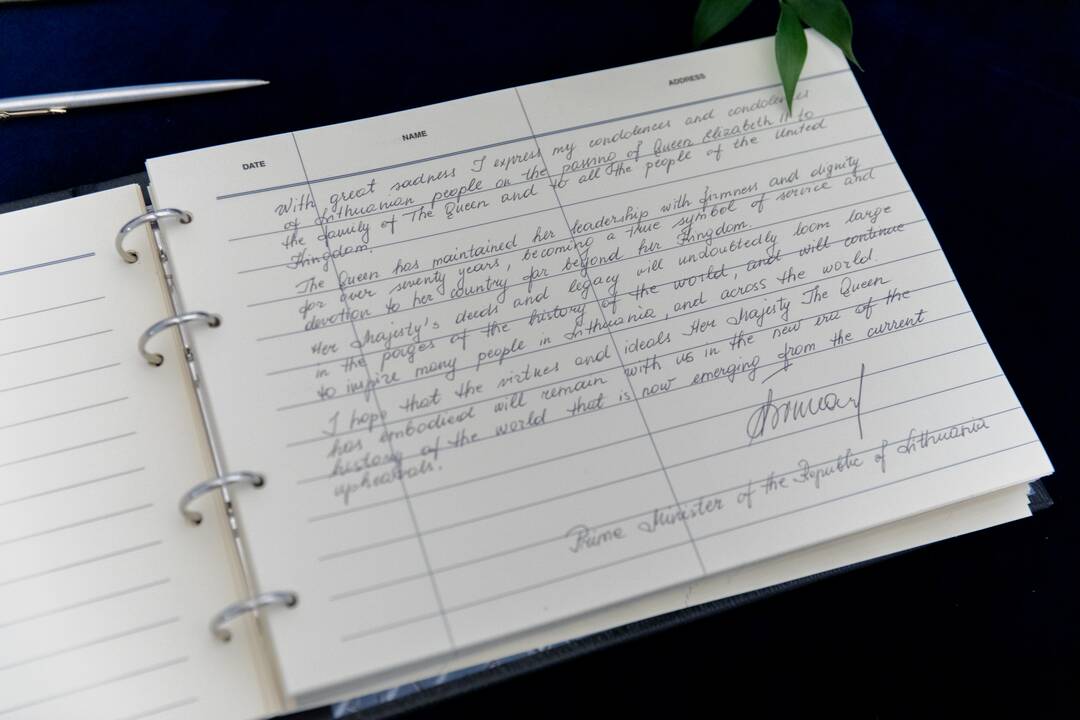 DATE NAME ADDRESS
With great sadness I express my condolences and condolences
of Lithuanian people on the passing of Queen Elizabeth II to
the family of The Queen and to all the people of the United
Kingdom.
The Queen has maintained her leadership with firmness and dignity
for over seventy years, becoming a true symbol of service and
devotion to her country far beyond her Kingdom.
Her Majesty's deeds and legacy will undoubtedly loom large
in the pages of the history of the world, and will continue
to inspire many people in Lithuania, and across the world.
I hope that the virtues and ideals Her Majesty The Queen
has embodied will remain with us in the new era of the
history of the world that is now emerging from the current
upheavals.
Prime Minister of the Republic of Lithuania